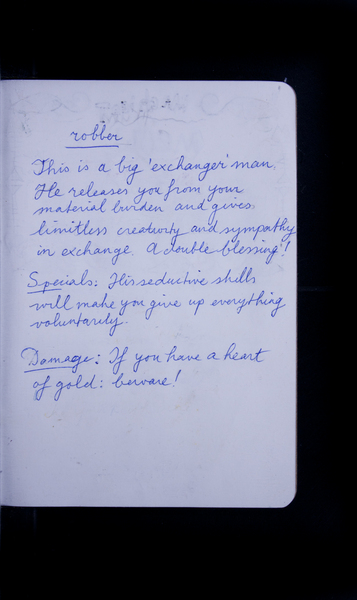 robber
This is a big 'exchanger' man.
He releases you from your
material burden and gives
limitless creativity and sympathy
in exchange. A double blessing!
Specials: His seductive skills
will make you give up everything
voluntarily.
Damage: If you have a heart
of gold: beware!